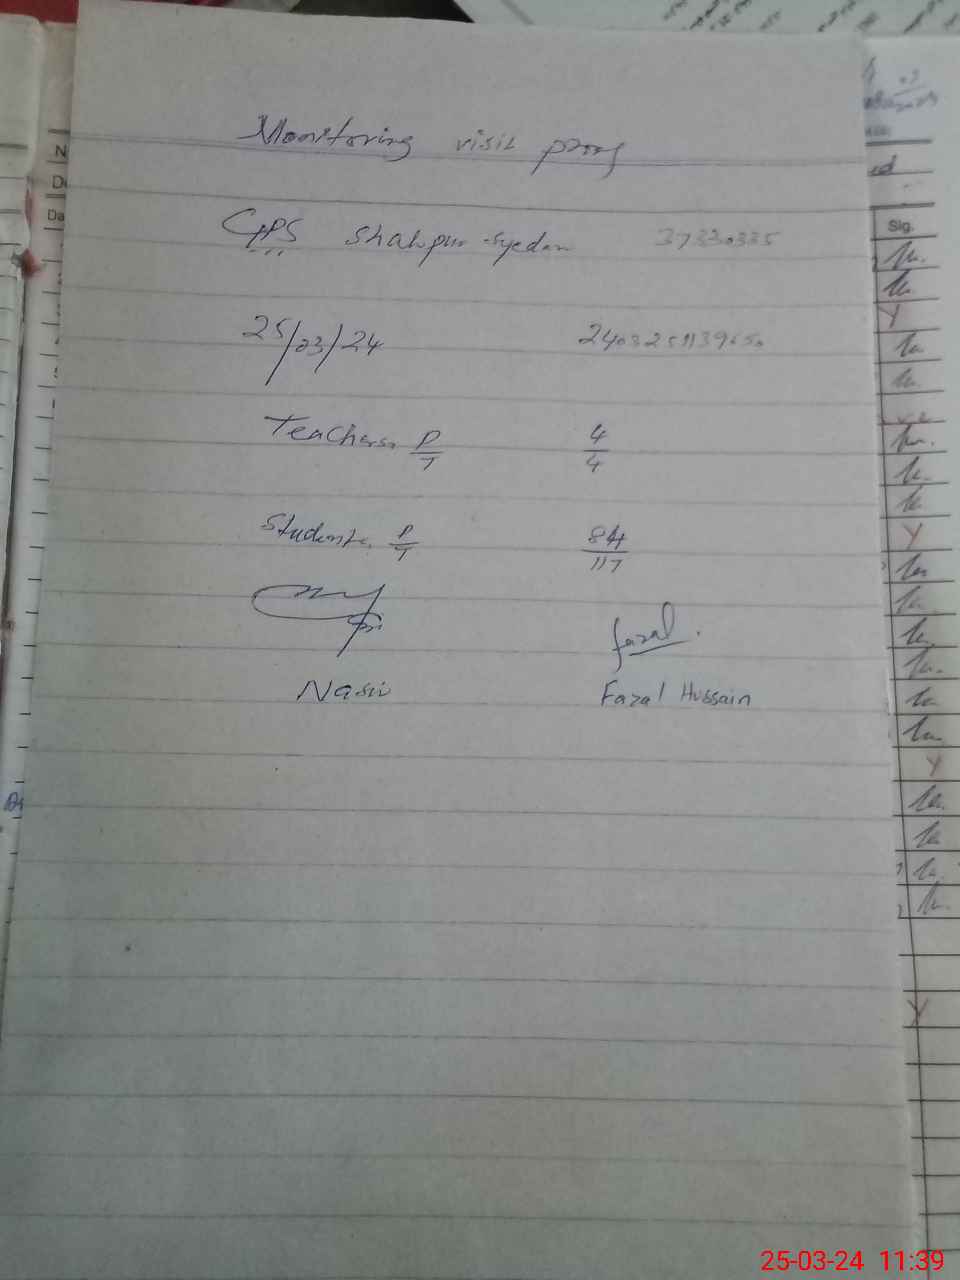 Monitoring visit proof
GPS Shahpur Syedan 37330335
25/03/24 240325113950
Teachers P/T 4/4
Students P/T 84/117
fazal.
Nasir Fazal Hussain
Sig.
25-03-24 11:39